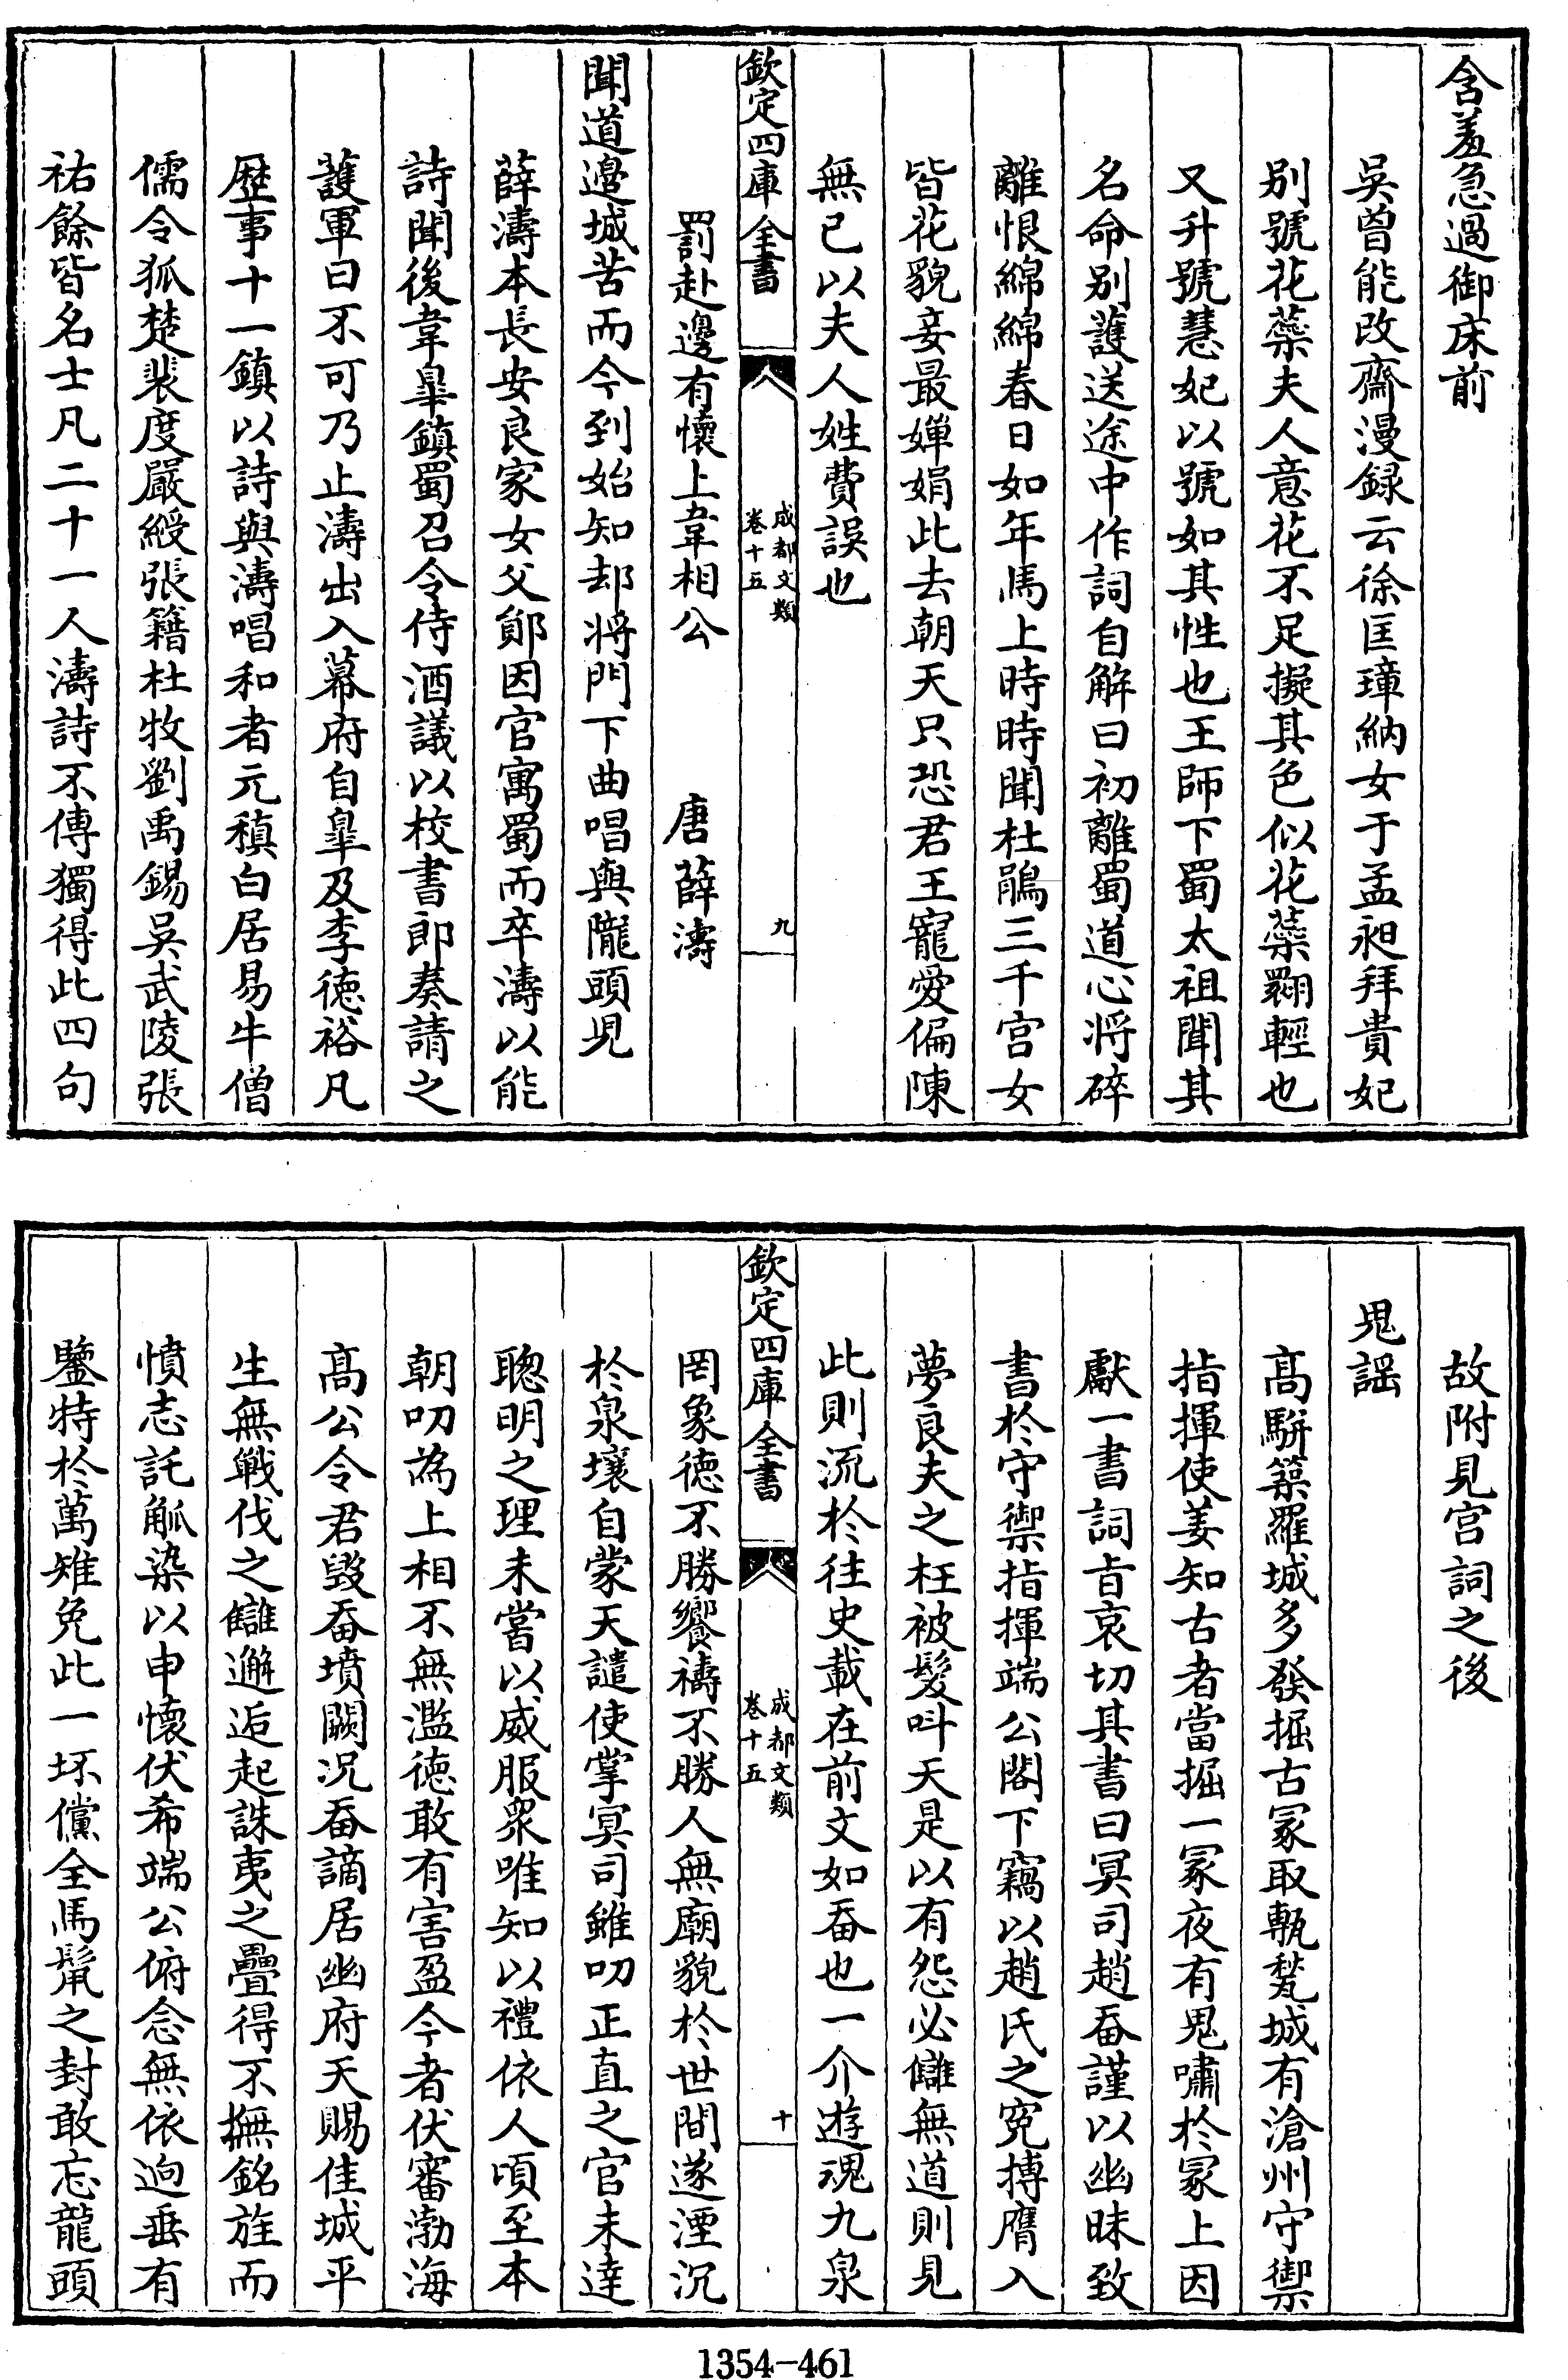 含羞急過御床前
吳曾能改齋漫録云徐匡璋納女于孟昶拜貴妃
别號花蘂夫人意花不足擬其色似花蘂翾輕也
又升號慧妃以號如其性也王師下蜀太祖聞其
名命别護送途中作詞自解曰初離蜀道心将碎
離恨綿綿春日如年馬上時時聞杜鵑三千宫女
皆花貌妾最嬋娟此去朝天只恐君王寵愛偏陳
無已以夫人姓費誤也
欽定四庫全書
成都文類
卷十五
九
罰赴邊有懷上韋相公 唐薛濤
聞道邉城苦而今到始知却将門下曲唱與隴頭児
薛濤本長安良家女父鄖因官寓蜀而卒濤以能
詩聞後韋臯鎮蜀召令侍酒議以校書郎奏請之
護軍曰不可乃止濤出入幕府自臯及李徳裕凡
歷事十一鎮以詩與濤唱和者元稹白居易牛僧
儒令狐楚裴度嚴綬張籍杜牧劉禹錫吳武陵張
祐餘皆名士凡二十一人濤詩不傳獨得此四句
故附見宫詞之後
鬼謡
髙駢築羅城多發掘古冢取甎甃城有滄州守禦
指揮使姜知古者當掘一冢夜有鬼嘯於冢上因
獻一書詞旨哀切其書曰冥司趙畚謹以幽昧致
書於守禦指揮端公閤下竊以趙氏之寃搏膺入
夢良夫之枉被髮呌天是以有怨必讎無道則見
此則流於往史載在前文如畚也一介遊魂九泉
欽定四庫全書
成都文類
卷十五
十
罔象徳不勝饗禱不勝人無廟貌於世間遂湮沉
於泉壤自蒙天譴使掌冥司雖叨正直之官未達
聰明之理未嘗以威服衆唯知以禮依人頃至本
朝叨為上相不無濫徳敢有害盈今者伏審渤海
髙公令君毀畚墳闕况畚謫居幽府天賜佳城平
生無戰伐之讎邂逅起誅夷之疊得不撫銘旌而
憤志託觚染以申懷伏希端公俯念無依逈垂有
鑒特於萬雉免此一坏儻全馬鬛之封敢忘龍頭
1354-461